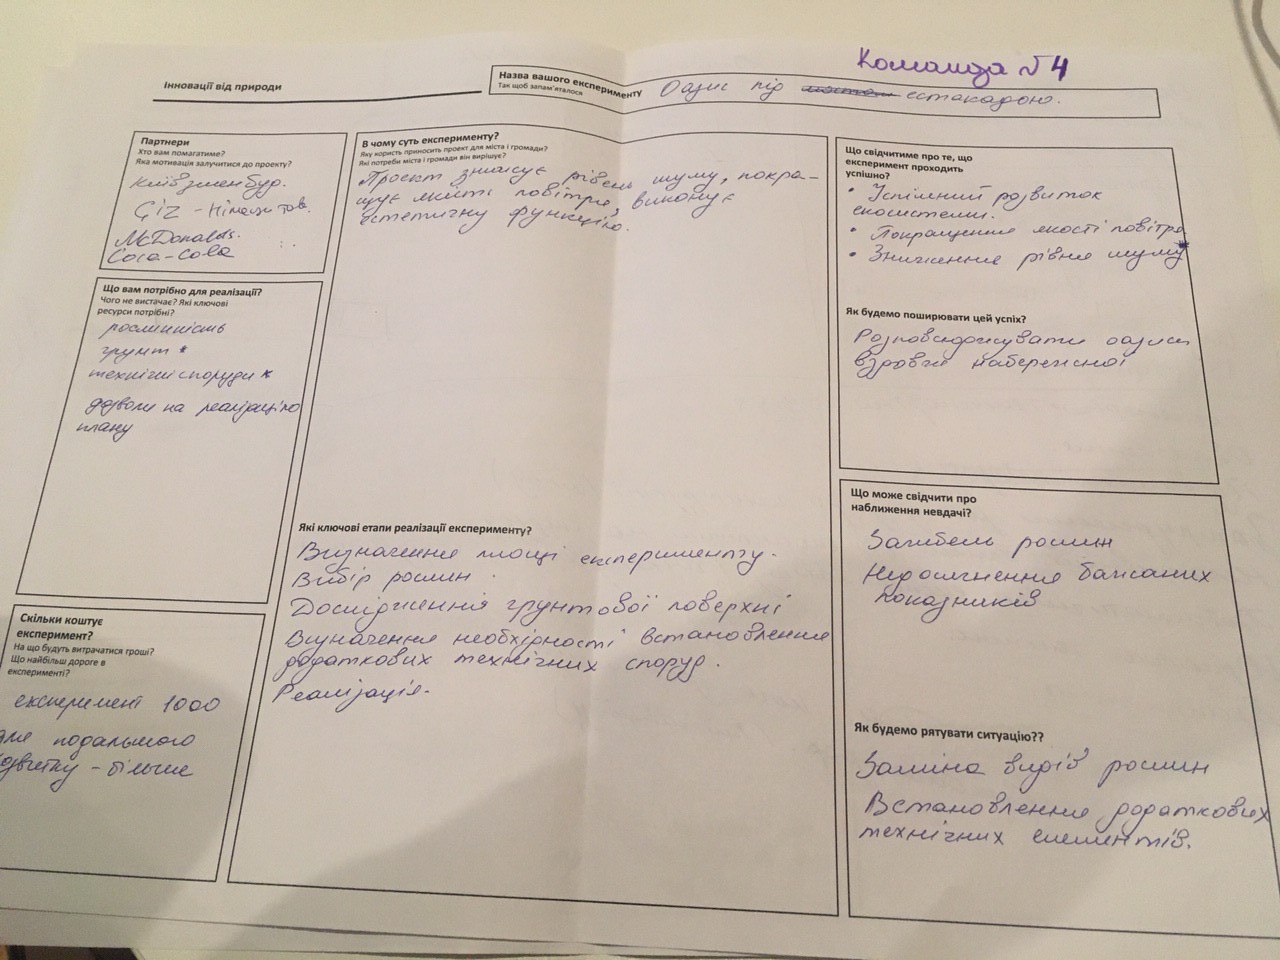 Команда №4
Інновації від природи
Назва вашого експерименту
Так щоб запам'яталося
Оазис під мостом естакадою.
Партнери
Хто вам помагатиме?
Яка мотивація залучитися до проекту?
Київзеленбуд.
GIZ - Німецьк тов.
McDonalds.
Coca-Cola
Що вам потрібно для реалізації?
Чого не вистачає? Які ключові
ресурси потрібні?
рослинність
грунт *
технічні споруди *
дозволи на реалізацію
плану
Скільки коштує
експеримент?
На що будуть витрачатися гроші?
Що найбільш дороге в
експерименті?
експеримент 1000
для подальшого
розвитку - більше
В чому суть експерименту?
Яку користь приносить проект для міста і громади?
Які потреби міста і громади він вирішує?
Проект знижує рівень шуму, покра-
щує якість повітря, виконує
естетичну функцію.
Які ключові етапи реалізації експерименту?
Визначення площі експерименту.
Вибір рослин
Дослідження грунтової поверхні
Визначення необхідності встановлення
додаткових технічних споруд.
Реалізація.
Що свідчитиме про те, що
експеримент проходить
успішно?
• Успішний розвиток
екосистеми.
• Покращення якості повітря
• Зниження рівня шуму
Як будемо поширювати цей успіх?
Розповсюджувати оазиси
вздовж набережної
Що може свідчити про
наближення невдачі?
Загибель рослин
Недосягнення бажаних
показників
Як будемо рятувати ситуацію??
Заміна видів рослин
Встановлення додаткових
технічних елементів.